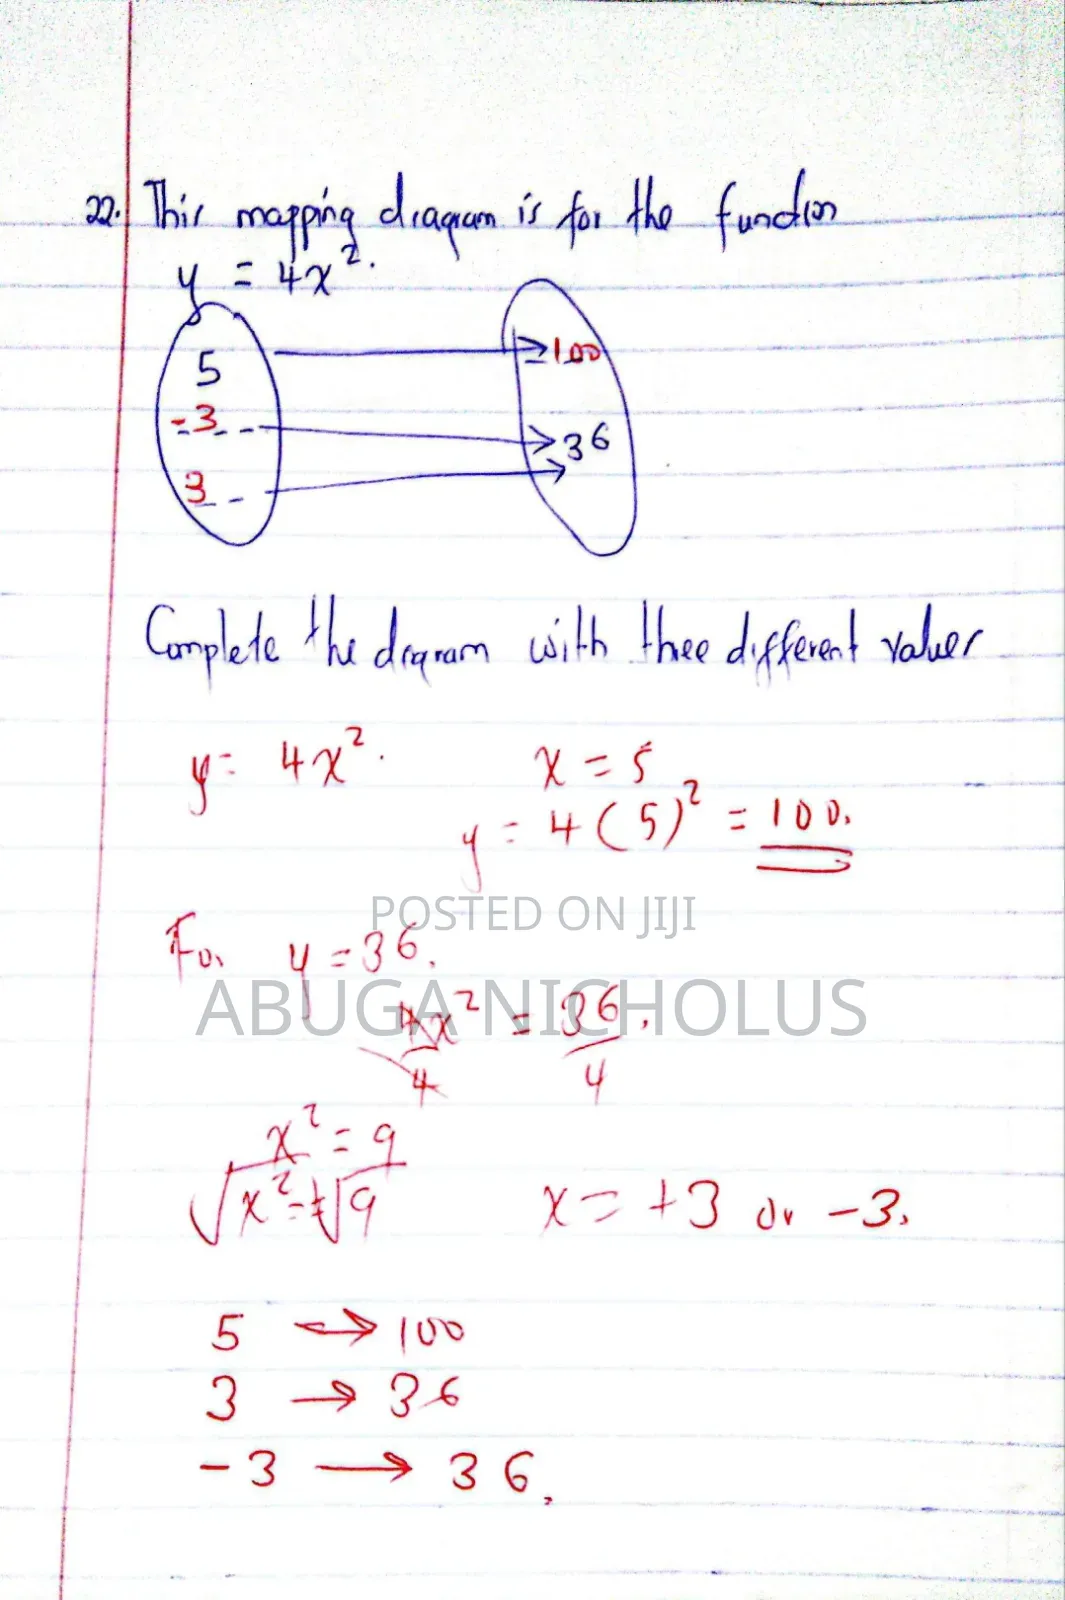 22. This mapping diagram is for the function
y = 4x².
5 100
-3 36
3
Complete the diagram with three different values
y = 4x². x = 5
y = 4(5)² = 100.
POSTED ON JIJI
For y = 36.
ABUGA NICHOLUS
4x² = 36.
4 4
x² = 9
√x² = ±√9 x = +3 or -3.
5 → 100
3 → 36
-3 → 36.